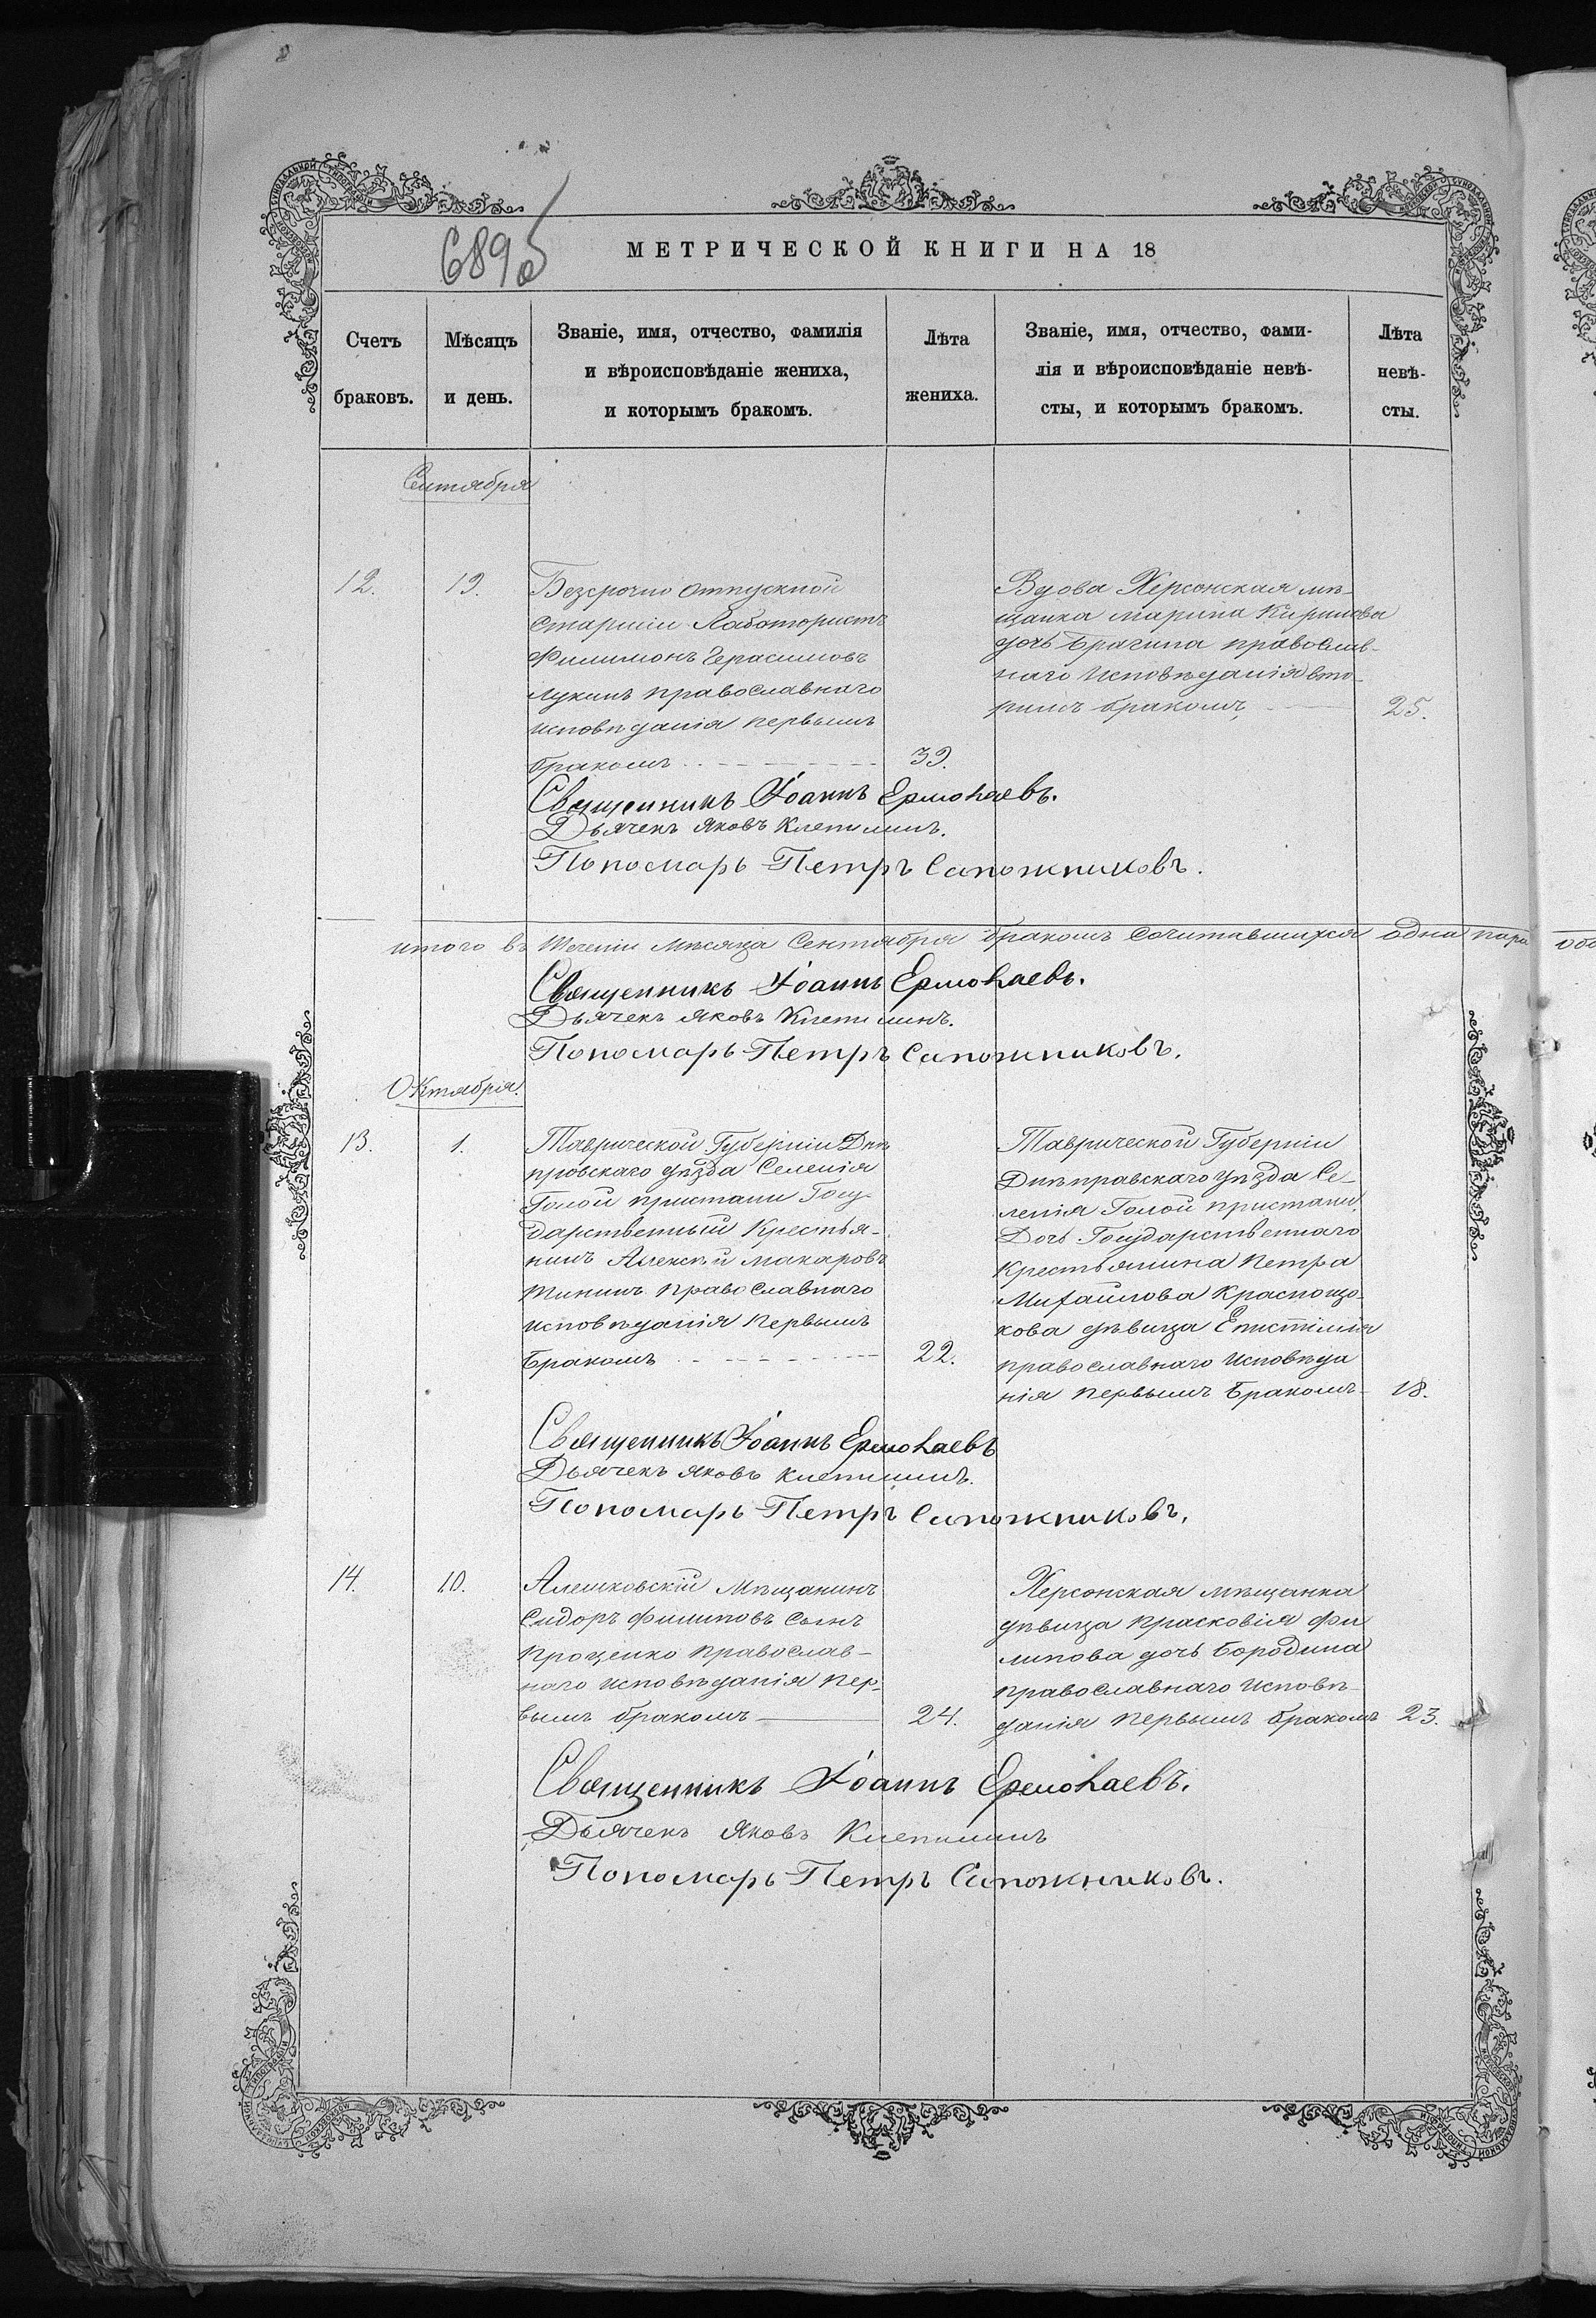 689 об
МЕТРИЧЕСКОЙ КНИГИ НА 18
Счетъ браковъ.
Мѣсяцъ и день.
Званіе, имя, отчество, фамилія
и вѣроисповѣданіе жениха,
и которымъ бракомъ.
Лѣта жениха.
Званіе, имя, отчество, фами-
лія и вѣроисповѣданіе невѣ-
сты, и которымъ бракомъ.
Лѣта невѣ-
сты.
Сентября
12.
19.
Безсрочно отпускной
старшій Лабатористъ
Филимонъ Герасимовъ
Лукинъ православнаго
исповѣданія первымъ
бракомъ
39.
Вдова Херсонская мѣ-
щанка Марина Кирилова
дочь Брагина православ-
наго исповѣданія вто-
рымъ бракомъ,
25.
Священникъ Іоаннъ Ермолаевъ.
Дьячекъ Яковъ Клепининъ.
Пономарь Петръ Сапожниковъ.
итого въ теченіи мѣсяца Сентября бракомъ сочитавшихся одна пара
Священникъ Іоаннъ Ермолаевъ.
Дьячекъ Яковъ Клепининъ.
Пономарь Петръ Сапожниковъ.
Октября.
13.
1.
Таврической Губерніи Днѣ
провскаго уѣзда Селенія
Голой пристани Госу-
дарственный Крестья-
нинъ Алексѣй Макаровъ
Тининъ православнаго
исповѣданія первымъ
бракомъ
22.
Таврической Губерніи
Днѣправскаго уѣзда Се-
ленія Голой пристани,
Дочь Государственнаго
Крестьянина Петра
Михайлова Краснощо-
кова дѣвица Епистимія
православнаго исповѣда
нія первымъ бракомъ
18.
Священникъ Іоаннъ Ермолаевъ
Дьячекъ Яковъ Клепининъ.
Пономарь Петръ Сапожниковъ.
14.
10.
Алешковскій мѣщанинъ
Сидоръ Филиповъ сынъ
Проценко православ-
наго исповѣданія пер-
вымъ бракомъ
24.
Херсонская мѣщанка
дѣвица Прасковія Фи
липова дочь Бородина
православнаго исповѣ-
данія первымъ бракомъ
23.
Священникъ Іоаннъ Ермолаевъ.
Дьячекъ Яковъ Клепининъ
Пономарь Петръ Сапожниковъ.